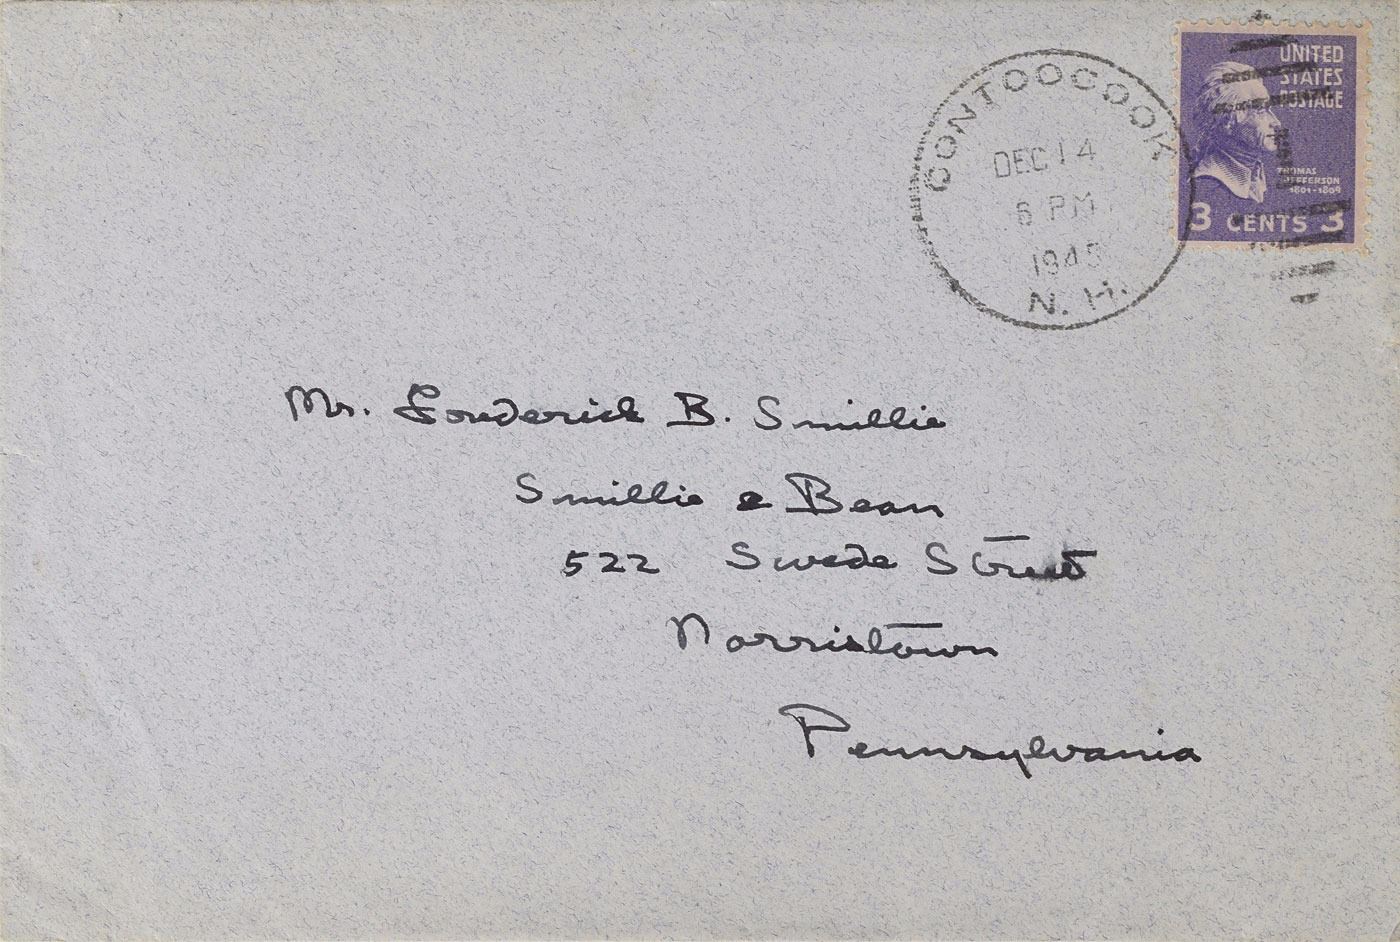 CONTOOCOOK
DEC 14
6 PM
1945
N. H.
UNITED
STATES
POSTAGE
THOMAS
JEFFERSON
1801-1809
3 CENTS 3
Mr. Frederick B. Smillie
Smillie & Bean
522 Swede Street
Norristown
Pennsylvania